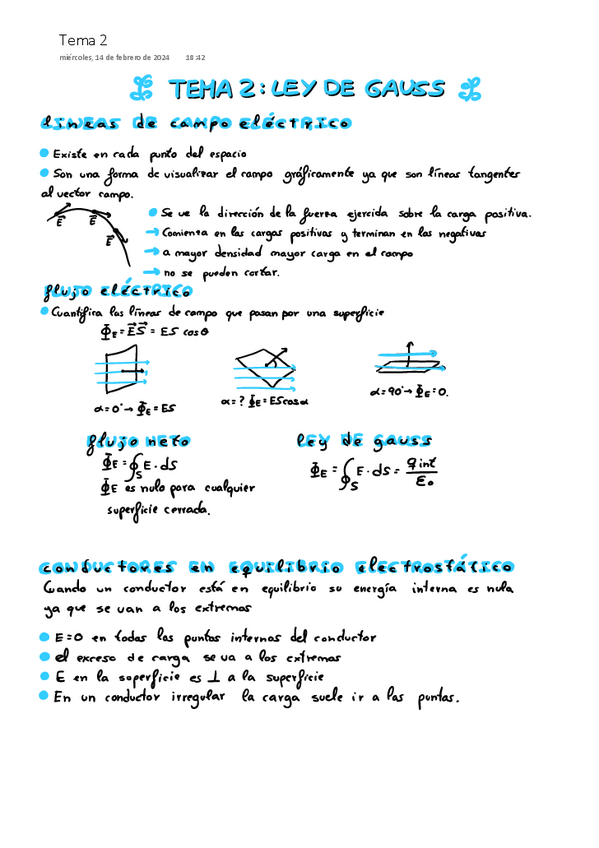 Tema 2
miércoles, 14 de febrero de 2024 18:42
TEMA 2: LEY DE GAUSS
líneas de campo eléctrico
Existe en cada punto del espacio
Son una forma de visualizar el campo gráficamente ya que son líneas tangentes
al vector campo.
E⃗ E⃗ E⃗
Se ve la dirección de la fuerza ejercida sobre la carga positiva.
→ Comienta en las cargas positivas y terminan en las negativas
→ a mayor densidad mayor carga en el campo
→ no se pueden cortar.
flujo eléctrico
Cuantifira las líneas de campo que pasan por una superficie
Φ_E = E⃗S⃗ = ES cos θ
α=0°→ Φ_E = ES
α=? Φ_E = ES cos α
α=90°→ Φ_E = 0.
flujo neto
Φ_E = ∮_S E · dS
Φ_E es nulo para cualquier
superficie cerrada.
ley de gauss
Φ_E = ∮_S E · dS = q int / ε₀
conductores en equilibrio electrostático
Cuando un conductor está en equilibrio su energía interna es nula
ya que se van a los extremos
E=0 en todas los puntos internos del conductor
el exceso de carga se va a los extremos
E en la superficie es ⊥ a la superficie
En un conductor irregular la carga suele ir a las puntas.